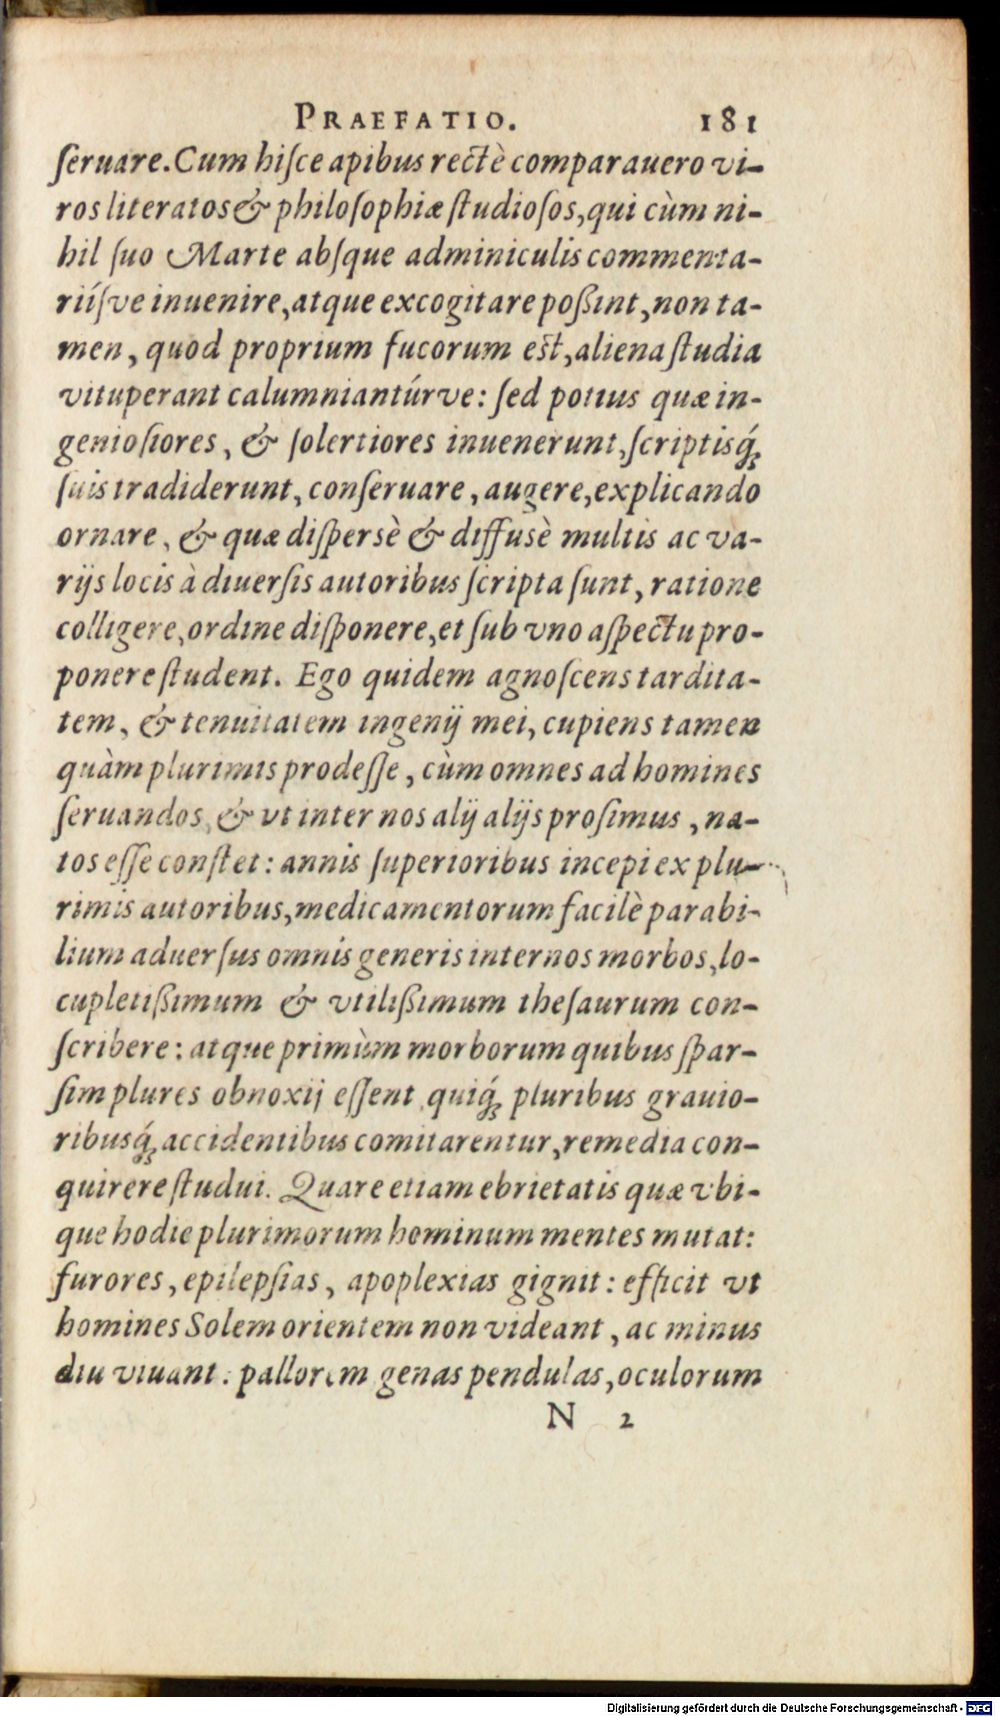 PRAEFATIO. 181
ſeruare. Cum hiſce apibus rectè comparauero vi-
ros literatos & philoſophiæ ſtudioſos, qui cùm ni-
hil ſuo Marte abſque adminiculis commenta-
riíſve inuenire, atque excogitare poßint, non ta-
men, quod proprium fucorum est, aliena ſtudia
vituperant calumniantúrve: ſed potius quæ in-
genioſiores, & ſolertiores inuenerunt, ſcriptisq́;
ſuis tradiderunt, conſeruare, augere, explicando
ornare, & quæ diſpersè & diffusè multis ac va-
rijs locis à diuerſis autoribus ſcripta ſunt, ratione
colligere, ordine diſponere, et ſub vno aſpectu pro-
ponere ſtudent. Ego quidem agnoſcens tardita-
tem, & tenuitatem ingenij mei, cupiens tamen
quàm plurimis prodeſſe, cùm omnes ad homines
ſeruandos, & vt inter nos alij alijs proſimus, na-
tos eſſe conſtet: annis ſuperioribus incepi ex plu-
rimis autoribus, medicamentorum facilè parabi-
lium aduerſus omnis generis internos morbos, lo-
cupletißimum & vtilißimum theſaurum con-
ſcribere: atque primùm morborum quibus ſpar-
ſim plures obnoxij eſſent, quiq́; pluribus grauio-
ribusq́; accidentibus comitarentur, remedia con-
quirere ſtudui. Quare etiam ebrietatis quæ vbi-
que hodie plurimorum hominum mentes mutat:
furores, epilepſias, apoplexias gignit: efficit vt
homines Solem orientem non videant, ac minus
diu viuant: pallorem genas pendulas, oculorum
N 2
Digitalisierung gefördert durch die Deutsche Forschungsgemeinschaft - DFG